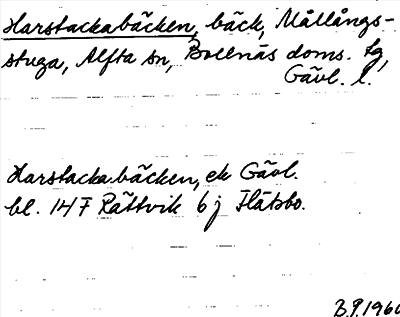 Harstackabäcken, bäck, Mållångs-
stuga, Alfta sn, Bollnäs doms. tg,
Gävl. l.
Harstackabäcken, ek Gävl.
bl. 14 F Rättvik 6 j Flätsbo.
B.P. 1960